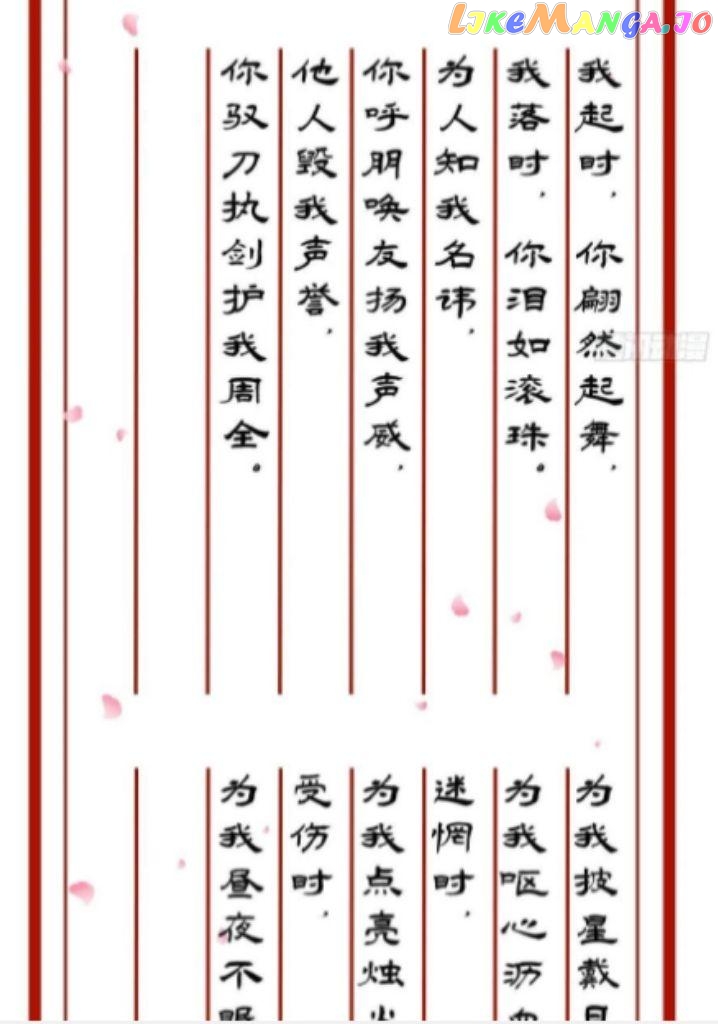 LIKEMANGA.IO
我起时，你翩然起舞，
我落时，你泪如滚珠。
为人知我名讳，
你呼朋唤友扬我声威，
他人毁我声誉，
你驭刀执剑护我周全。
为我披星戴月
为我呕心沥血
迷惘时，
为我点亮烛火
受伤时，
为我昼夜不眠